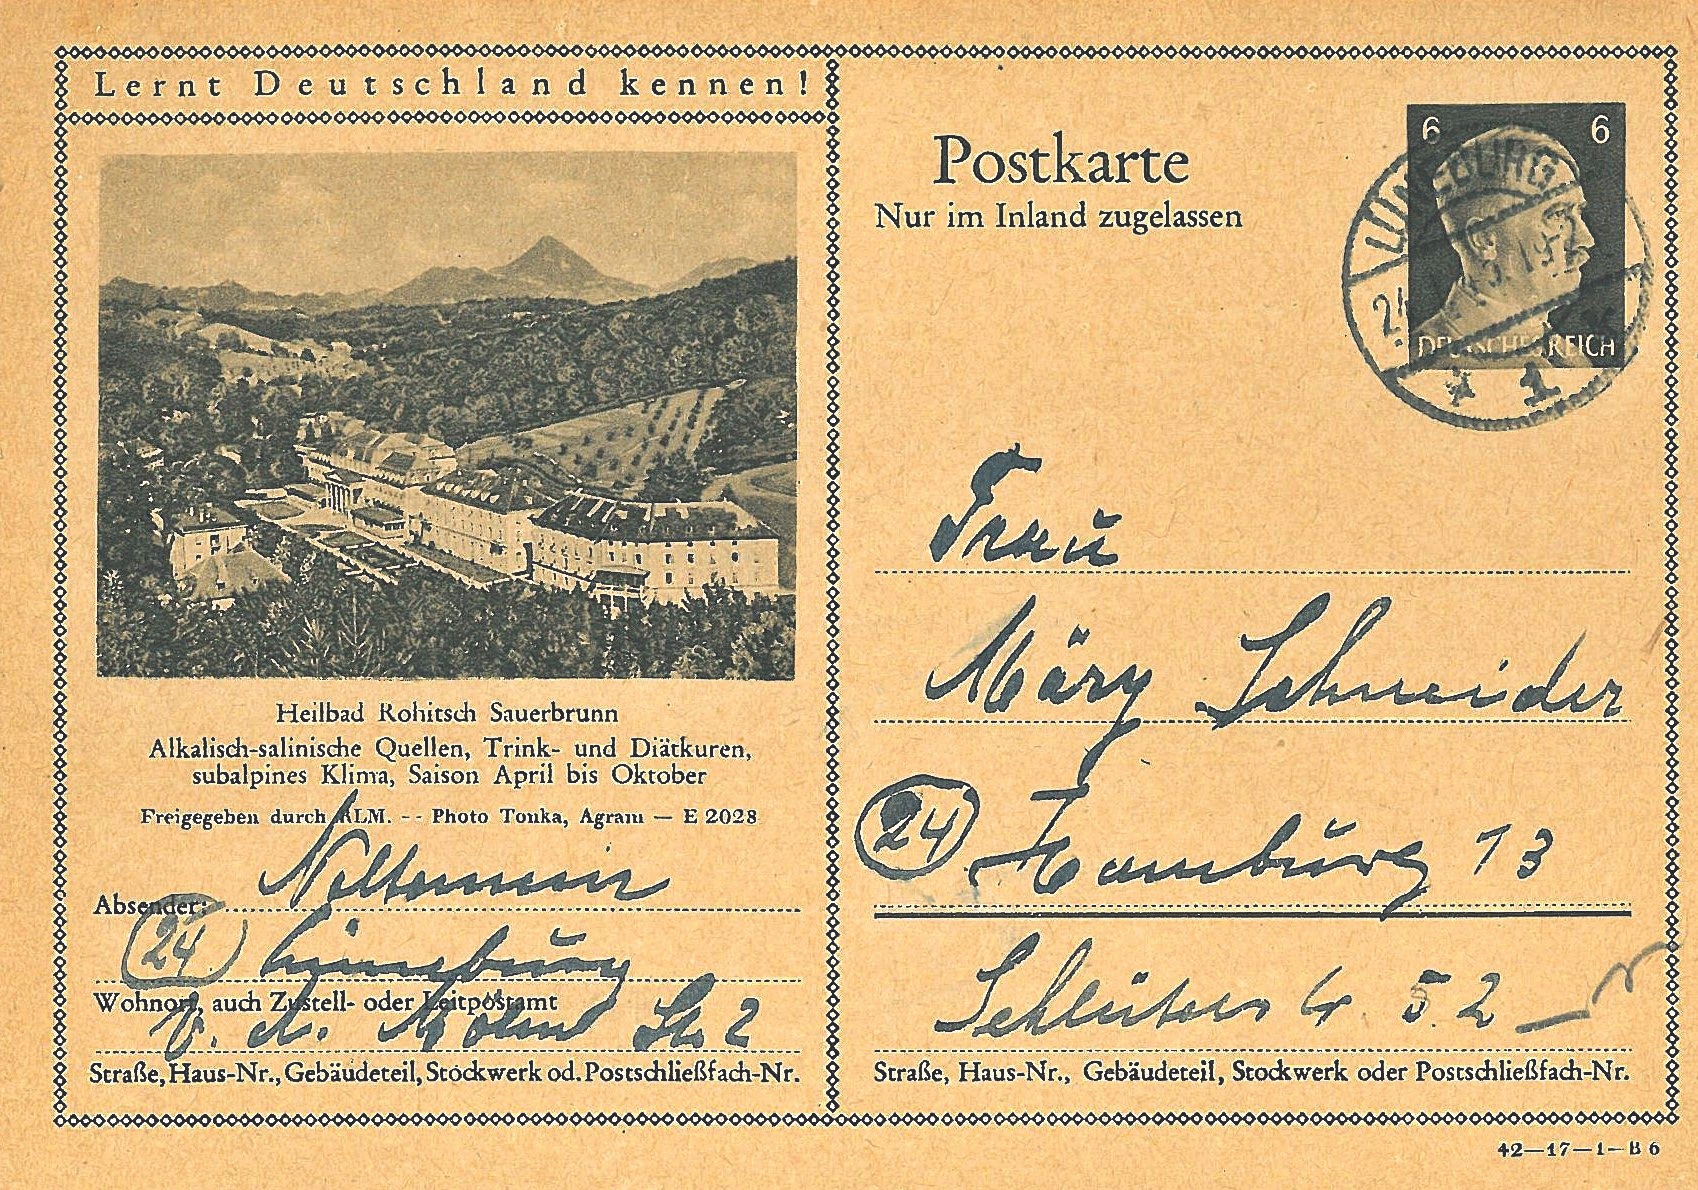 Lernt Deutschland kennen!
Heilbad Rohitsch Sauerbrunn
Alkalisch-salinische Quellen, Trink- und Diätkuren,
subalpines Klima, Saison April bis Oktober
Freigegeben durch RLM. -- Photo Tonka, Agram — E 2028
Absender:
24 Lüneburg
Wohnort, auch Zustell- oder Leitpostamt
v. d.
Straße, Haus-Nr., Gebäudeteil, Stockwerk od. Postschließfach-Nr.
Postkarte
Nur im Inland zugelassen
6 6
DEUTSCHES REICH
LÜNEBURG
24
1
Frau
Märy Schneider
24 Hamburg 13
52
Straße, Haus-Nr., Gebäudeteil, Stockwerk oder Postschließfach-Nr.
42—17—1—B 6